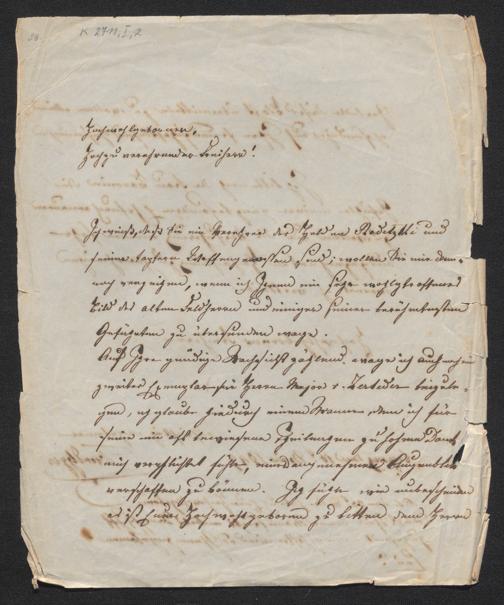 K 2711, I, 2
Hochwohlgeborner,
Hochzuverehrender Freiherr!
Ich weiß, daß Sie ein Verehrer des Helden Radetzky und
seiner tapfern Waffengenossen sind; wollen Sie mir dem-
nach verzeihen, wenn ich Ihnen ein sehr wohlgetroffenes
Bild des alten Feldherrn und einiger seiner berühmtesten
Gefährten zu übersenden wage.
Auf Ihre gnädige Nachsicht zählend, wage ich auch noch
zweites Exemplar für Herrn Major v. beizule-
gen, ich glaube hiedurch einem Manne, dem ich für
seine mir oft bewiesene zu hohem Dank
mich verpflichtet fühle, einen angenehmen Augenblick
verschaffen zu können. Ich fühle wie unbescheiden
es ist Euer Hochwohlgeboren zu bitten dem Herrn